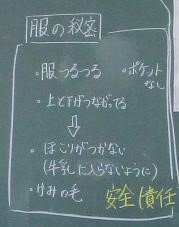 服の秘密
・服つるつる ・ポケットなし
・上と下がつながってる
⇩
・ほこりがつかない
(牛乳に入らないように)
・かみの毛
安全 責任